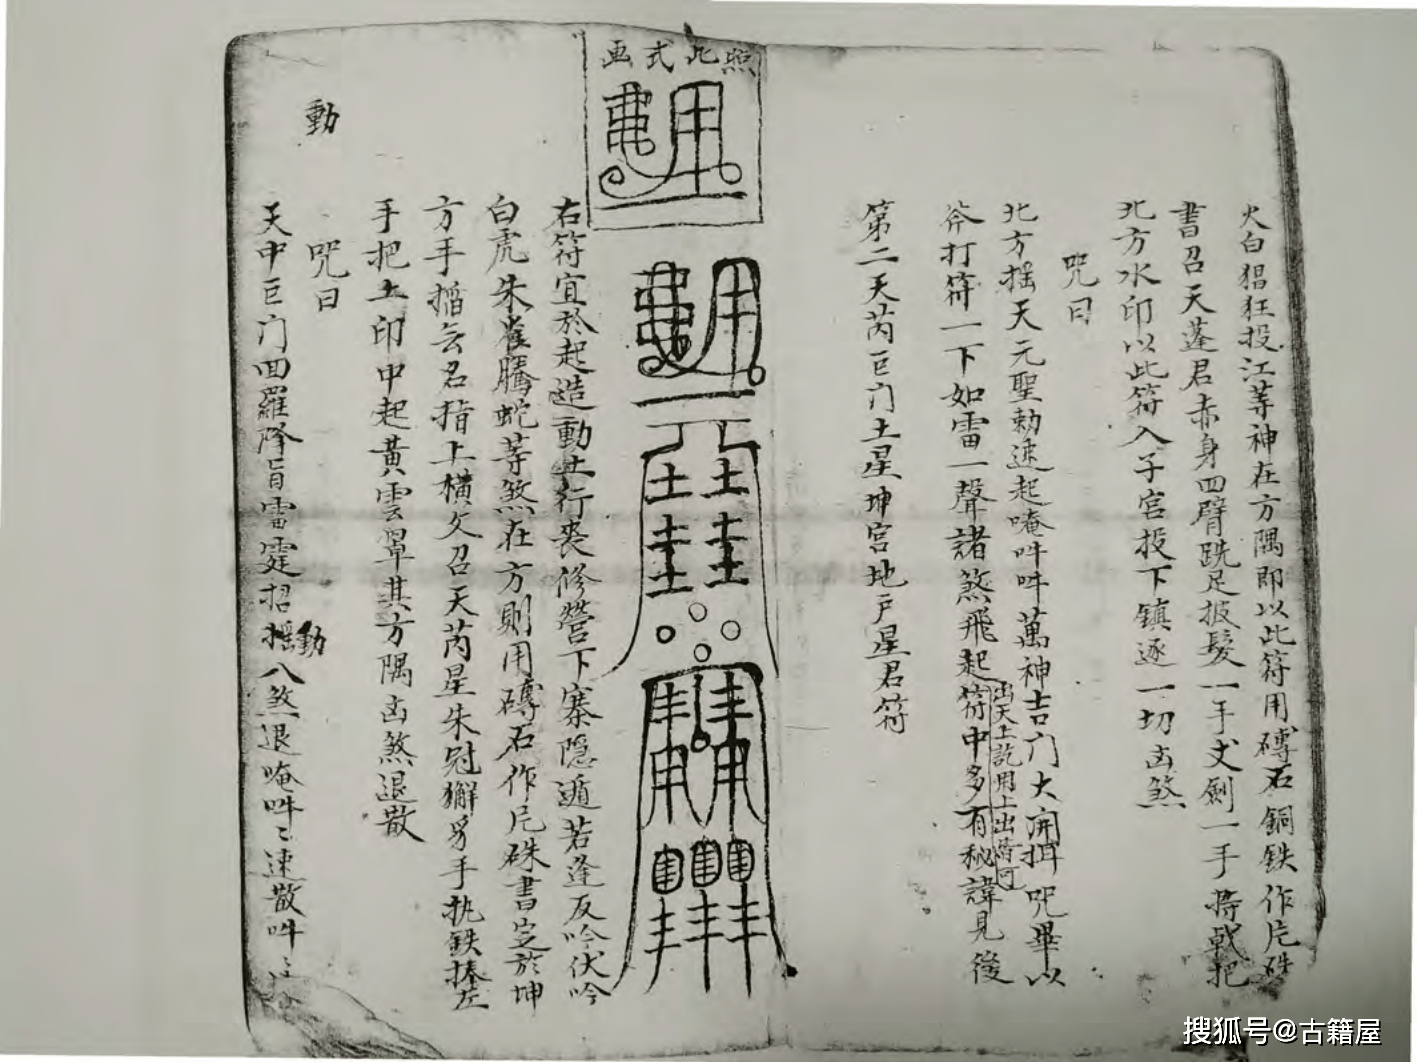 火白猖狂投江等神在方隅即以此符用磚石銅鉄作片硃
書召天蓬君赤身四臂跣足披髮一手丈劍一手將戟把
北方水印以此符入子宫投下鎮逐一切凶煞
咒曰
北方摇天元聖勅速起唵吽吽萬神吉门大開 咒畢以
斧打符一下如雷一聲諸煞飛起符中多有秘諱見後
第二天芮巨门土星坤宫地户星君符
照此式画
右符宜於起造動土行丧修營下寨隐遁若逢反吟伏吟
白虎朱雀騰蛇等煞在方則用磚石作片硃書定於坤
方手搯云名指上横文召天芮星朱冠獬豸手执鉄捧左
手把土印中起黃雲罩其方隅凶煞退散
咒曰
天中巨门四羅降旨雷霆招摇八煞退唵吽〻速散吽〻
動
動
搜狐号@古籍屋